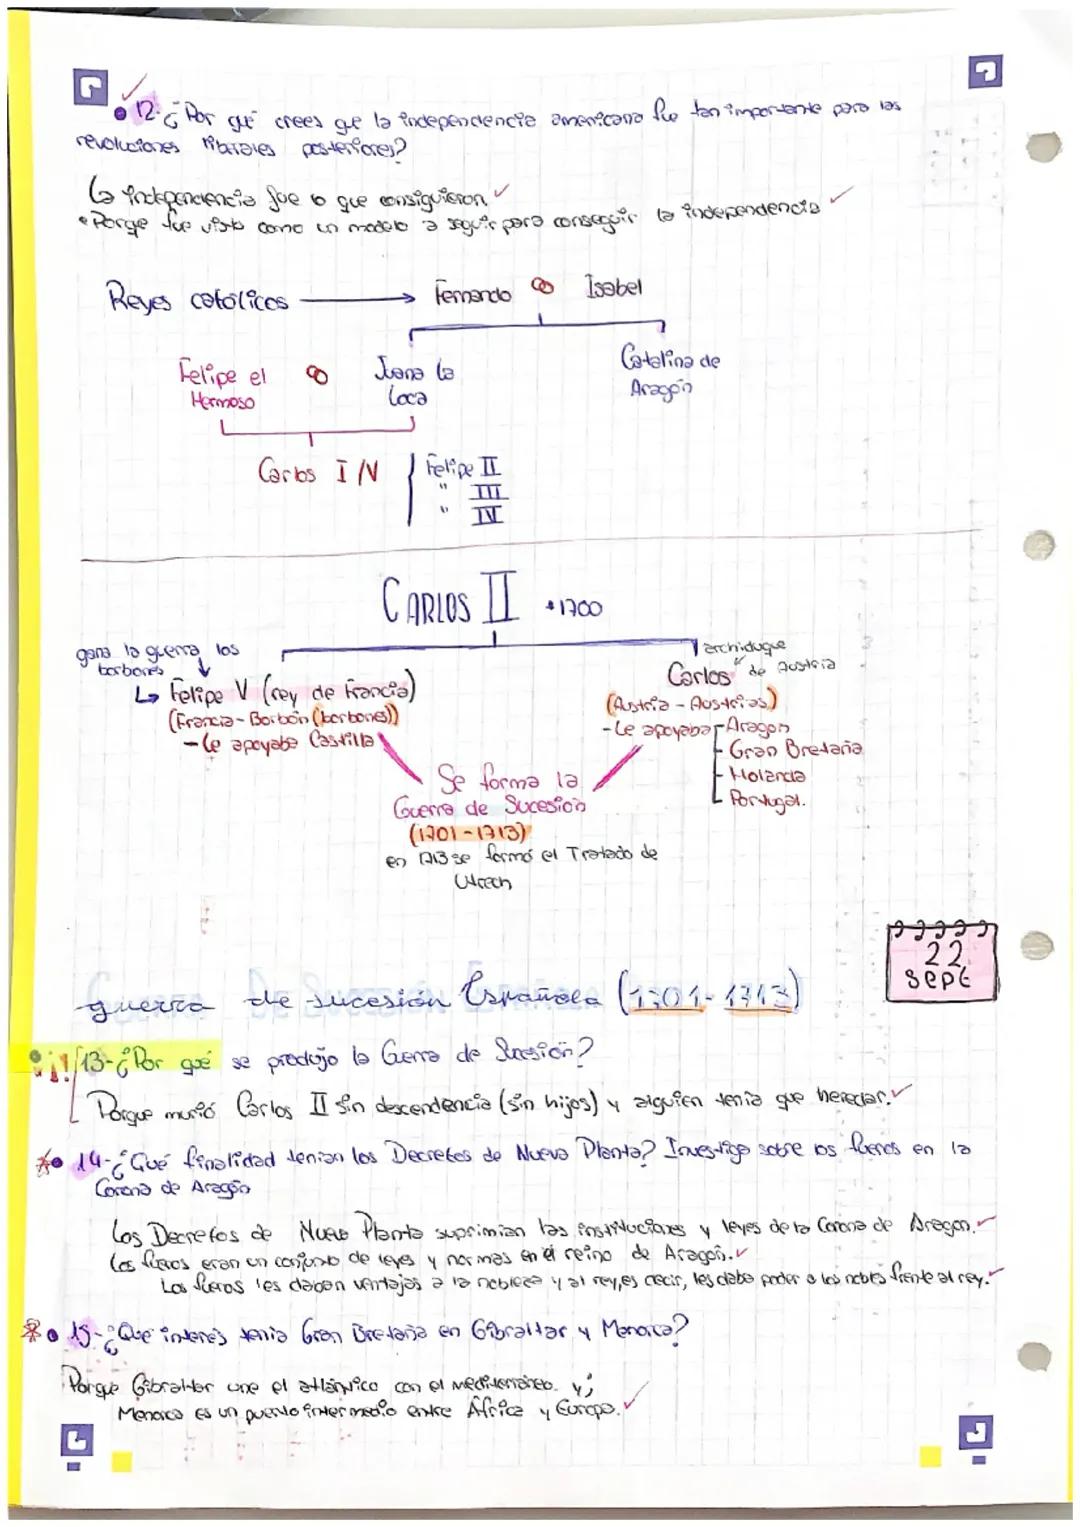 12-¿Por qué crees que la independencia americana fue tan importante para las
revoluciones liberales posteriores?
↳ independencia fue lo que consiguieron.
• Porque fue visto como un modelo a seguir para conseguir la independencia
Reyes católicos → Fernando Isabel
Felipe el Hermoso
Juana la Loca
Catalina de Aragón
Carlos I/V
Felipe II
" III
" IV
CARLOS II +1700
gana la guerra los
borbones
↳ Felipe V (rey de Francia)
(Francia-Borbón (borbones))
- Le apoyaba Castilla
archiduque
Carlos " de Austria
(Austria - Austrias)
- Le apoyaba Aragon
Gran Bretaña
Holanda
Portugal.
Se forma la
Guerra de Sucesión
(1701-1713)
en 1713 se formó el Tratado de
Utrech
22
Sept
guerra de sucesión Española (1701-1713)
¡!! 13-¿Por qué se produjo la Guerra de Sucesión?
Porque murió Carlos II sin descendencia (sin hijos) y alguien tenia que heredar.
14-¿Qué finalidad tenian los Decretos de Nueva Planta? Investiga sobre los fueros en la
Corona de Aragón
Los Decretos de Nueva Planta suprimian las instituciones y leyes de la Corona de Aragon.
Los fueros eran un conjunto de leyes y normas en el reino de Aragón.
Los fueros les daban ventajas a la nobleza y al rey, es decir, les daba poder a los nobles frente al rey.
15-¿Qué interés tenia Gran Bretaña en Gibraltar y Menorca?
Porque Gibraltar une el atlántico con el mediterráneo. y;
Menorca es un puerto intermedio entre África y Europa.